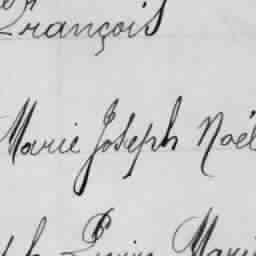 François
Marie Joseph Noël
Marie